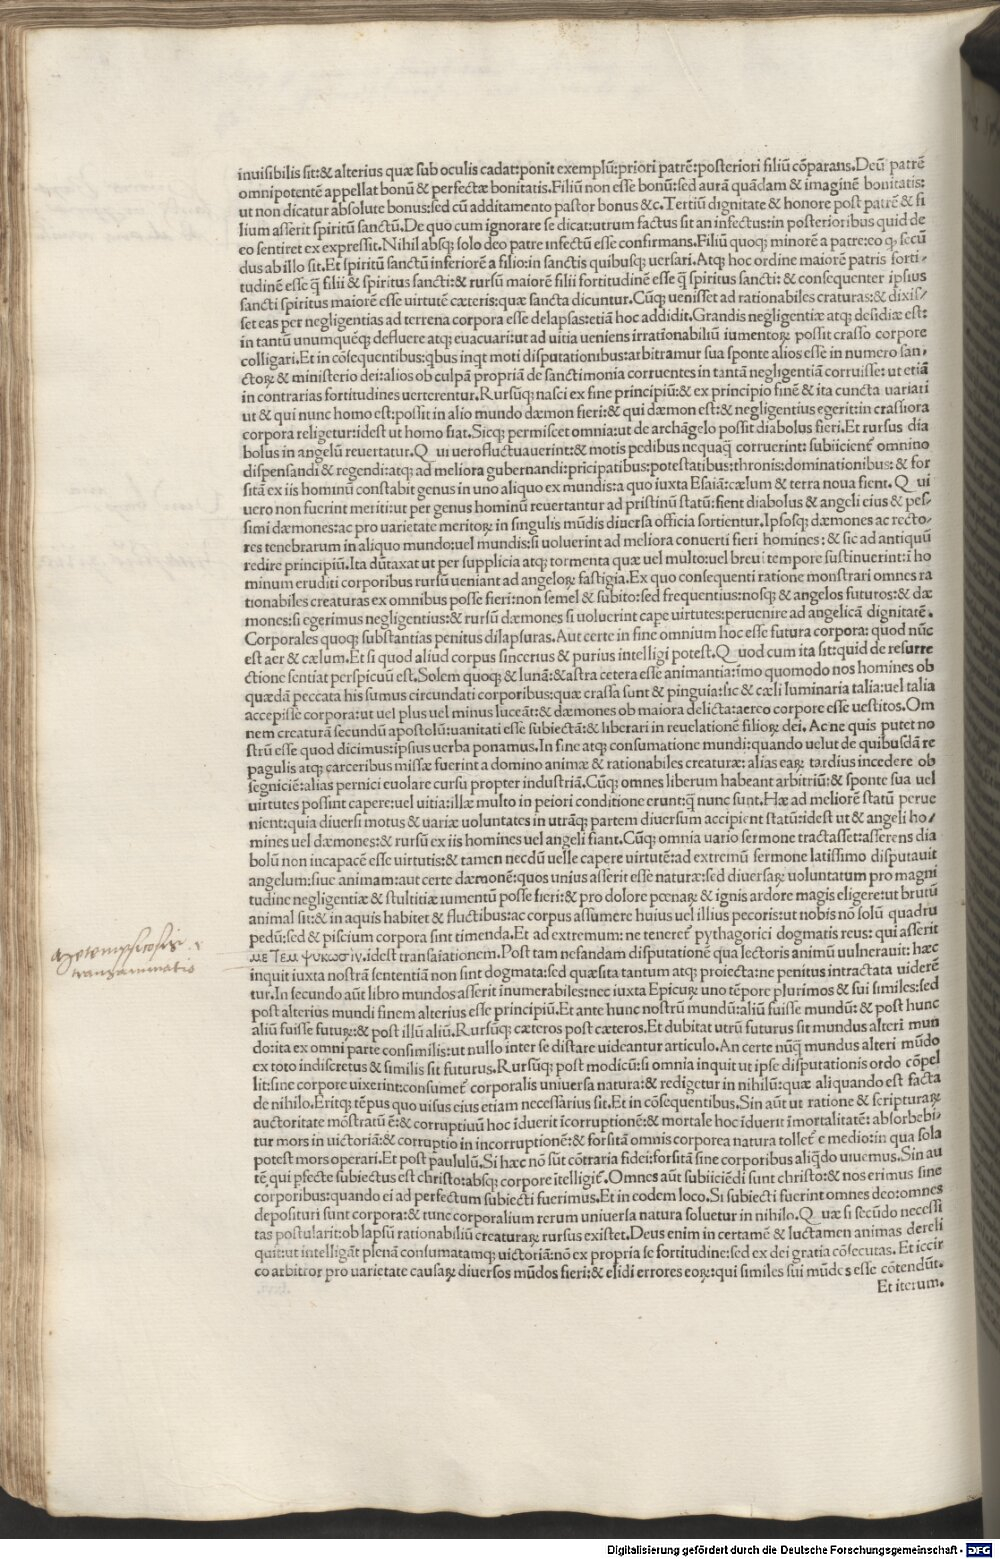 inuisibilis sit:& alterius quæ sub oculis cadat:ponit exemplū:priori patrē:posteriori filiū cōparans.Deū patrē
omnipotentē appellat bonū & perfectæ bonitatis.Filiū non esse bonū:sed aurā quādam & imaginē bonitatis:
ut non dicatur absolute bonus:sed cū additamento pastor bonus &c.Tertiū dignitate & honore post patrē & fi
lium asserit spiritū sanctū.De quo cum ignorare se dicat:utrum factus sit an infectus:in posterioribus quid de
eo sentiret expressit.Nihil absq; solo deo patre infectū esse confirmans.Filiū quoq; minorē a patre:eo q̨ secū
dus ab illo sit.Et spiritū sanctū inferiorē a filio:in sanctis quibusq; uersari.Atq; hoc ordine maiorē patris forti/
tudinē esse q̄ filii & spiritus sancti:& rursū maiorē filii fortitudinē esse q̄ spiritus sancti: & consequenter ipsius
sancti spiritus maiorē esse uirtutē cæteris:quæ sancta dicuntur. Cūq; uenisset ad rationabiles craturas:& dixis/
set eas per negligentias ad terrena corpora esse delapsas:etiā hoc addidit.Grandis negligentiæ atq; desidiæ est:
in tantū unumquéq; defluere atq; euacuari:ut ad uitia ueniens irrationabiliū iumentoꝝ possit crasso corpore
colligari.Et in cōsequentibus:qbus inqt moti disputationibus:arbitramur sua sponte alios esse in numero san/
ctoꝝ & ministerio dei:alios ob culpā propriā de sanctimonia corruentes in tantā negligentiā corruisse: ut etiā
in contrarias fortitudines uerterentur.Rursūq; nasci ex fine principiū:& ex principio finē & ita cuncta uariari
ut & qui nunc homo est:possit in alio mundo dæmon fieri:& qui dæmon est:& negligentius egerit:in crassiora
corpora religetur:idest ut homo fiat.Sicq; permiscet omnia:ut de archāgelo possit diabolus fieri.Et rursus dia
bolus in angelū reuertatur.Q ui uero fluctuauerint:& motis pedibus nequaq̄ corruerint: subiicient᷑ omnino
dispensandi & regendi:atq; ad meliora gubernandi:pricipatibus:potestatibus:thronis:dominationibus: & for
sitā ex iis hominū constabit genus in uno aliquo ex mundis:a quo iuxta Esaiā:cælum & terra noua fient. Q ui
uero non fuerint meriti:ut per genus hominū reuertantur ad pristinū statū:fient diabolus & angeli eius & pes/
simi dæmones:ac pro uarietate meritoꝝ in singulis mūdis diuersa officia sortientur.Ipsosq; dæmones ac recto/
res tenebrarum in aliquo mundo:uel mundis:si uoluerint ad meliora conuerti fieri homines: & sic ad antiquū
redire principiū.Ita dūtaxat ut per supplicia atq; tormenta quæ uel multo:uel breui tempore sustinuerint:i ho
minum eruditi corporibus rursū ueniant ad angeloꝝ fastigia.Ex quo consequenti ratione monstrari omnes ra
tionabiles creaturas ex omnibus posse fieri:non semel & subito:sed frequentius:nosq; & angelos futuros:& dæ
mones:si egerimus negligentius:& rursū dæmones si uoluerint cape uirtutes:peruenire ad angelicā dignitatē.
Corporales quoq; substantias penitus dilapsuras.Aut certe in fine omnium hoc esse futura corpora: quod nūc
est aer & cælum.Et si quod aliud corpus sincerius & purius intelligi potest.Q uod cum ita sit:quid de resurre
ctione sentiat perspicuū est.Solem quoq; & lunā:& astra cetera esse animantia:imo quomodo nos homines ob
quædā peccata his sumus circundati corporibus:quæ crassa sunt & pinguia:sic & cæli luminaria talia:uel talia
accepisse corpora:ut uel plus uel minus luceāt:& dæmones ob maiora delicta:aereo corpore esse uestitos.Om
nem creaturā secundū apostolū:uanitati esse subiectā:& liberari in reuelationē filioꝝ dei. Ac ne quis putet no
strū esse quod dicimus:ipsius uerba ponamus.In fine atq; consumatione mundi:quando uelut de quibusdā re
pagulis atq; carceribus missæ fuerint a domino animæ & rationabiles creaturæ: alias eaꝝ tardius incedere ob
segniciē:alias pernici euolare cursu propter industriā.Cūq; omnes liberum habeant arbitriū:& sponte sua uel
uirtutes possint capere:uel uitia:illæ multo in peiori conditione erunt:q̄ nunc sunt.Hæ ad meliorē statū perue
nient:quia diuersi motus & uariæ uoluntates in utrāq; partem diuersum accipient statū:idest ut & angeli ho/
mines uel dæmones:& rursū ex iis homines uel angeli fiant.Cūq; omnia uario sermone tractasset:asserens dia
bolū non incapacē esse uirtutis:& tamen necdū uelle capere uirtutē:ad extremū sermone latissimo disputauit
angelum:siue animam:aut certe dæmonē:quos unius asserit esse naturæ:sed diuersaꝝ uoluntatum pro magni
tudine negligentiæ & stultitiæ iumentū posse fieri:& pro dolore pœnaꝝ & ignis ardore magis eligere:ut brutū
animal sit:& in aquis habitet & fluctibus:ac corpus assumere huius uel illius pecoris:ut nobis nō solū quadru
pedū:sed & piscium corpora sint timenda.Et ad extremum: ne teneret᷑ pythagorici dogmatis reus: qui asserit
μετεμ ψυκωσιν.idest transaiationem.Post tam nefandam disputationē qua lectoris animū uulnerauit: hæc
inquit iuxta nostrā sententiā non sint dogmata:sed quæsita tantum atq; proiecta:ne penitus intractata uiderē
tur.In secundo aūt libro mundos asserit inumerabiles:nec iuxta Epicurū uno tēpore plurimos & sui similes:sed
post alterius mundi finem alterius esse principiū.Et ante hunc nostrū mundū:aliū fuisse mundū: & post hunc
aliū fuisse futuꝝ:& post illū aliū.Rursūq; cæteros post cæteros.Et dubitat utrū futurus sit mundus alteri mun
do:ita ex omni parte consimilis:ut nullo inter se distare uideantur articulo.An certe nūq̄ mundus alteri mūdo
ex toto indiscretus & similis sit futurus.Rursūq; post modicū:si omnia inquit ut ipse disputationis ordo cōpel
lit:sine corpore uixerint:consumet᷑ corporalis uniuersa natura:& redigetur in nihilū:quæ aliquando est facta
de nihilo.Eritq; tēpus quo uisus eius etiam necessarius sit.Et in cōsequentibus.Sin aūt ut ratione & scripturaꝝ
auctoritate mōstratū ē:& corruptiuū hoc iduerit īcorruptionē:& mortale hoc īduerit īmortalitatē: absorbebi/
tur mors in uictoriā:& corruptio in incorruptionē:& forsitā omnis corporea natura tollet᷑ e medio:in qua sola
potest mors operari.Et post paululū.Si hæc nō sūt cōtraria fidei:forsitā sine corporibus aliq̄do uiuemus.Sin au
tē qui pfecte subiectus est christo:absq; corpore ītelligit᷑.Omnes aūt subiiciēdi sunt christo:& nos erimus sine
corporibus:quando ei ad perfectum subiecti fuerimus.Et in eodem loco.Si subiecti fuerint omnes deo:omnes
deposituri sunt corpora:& tunc corporalium rerum uniuersa natura soluetur in nihilo.Q uæ si secūdo necessi
tas postularit:ob lapsū rationabiliū creaturaꝝ rursus existet.Deus enim in certamē & luctamen animas dereli
quit:ut intelligāt plenā consumatamq; uictoriā:nō ex propria se fortitudine:sed ex dei gratia cōsecutas. Et iccir
co arbitror pro uarietate causaꝝ diuersos mūdos fieri:& elidi errores eoꝝ:qui similes sui mūdos esse cōtendūt.
Et iterum.
Metempsicosis
transanimatio
Digitalisierung gefördert durch die Deutsche Forschungsgemeinschaft - DFG